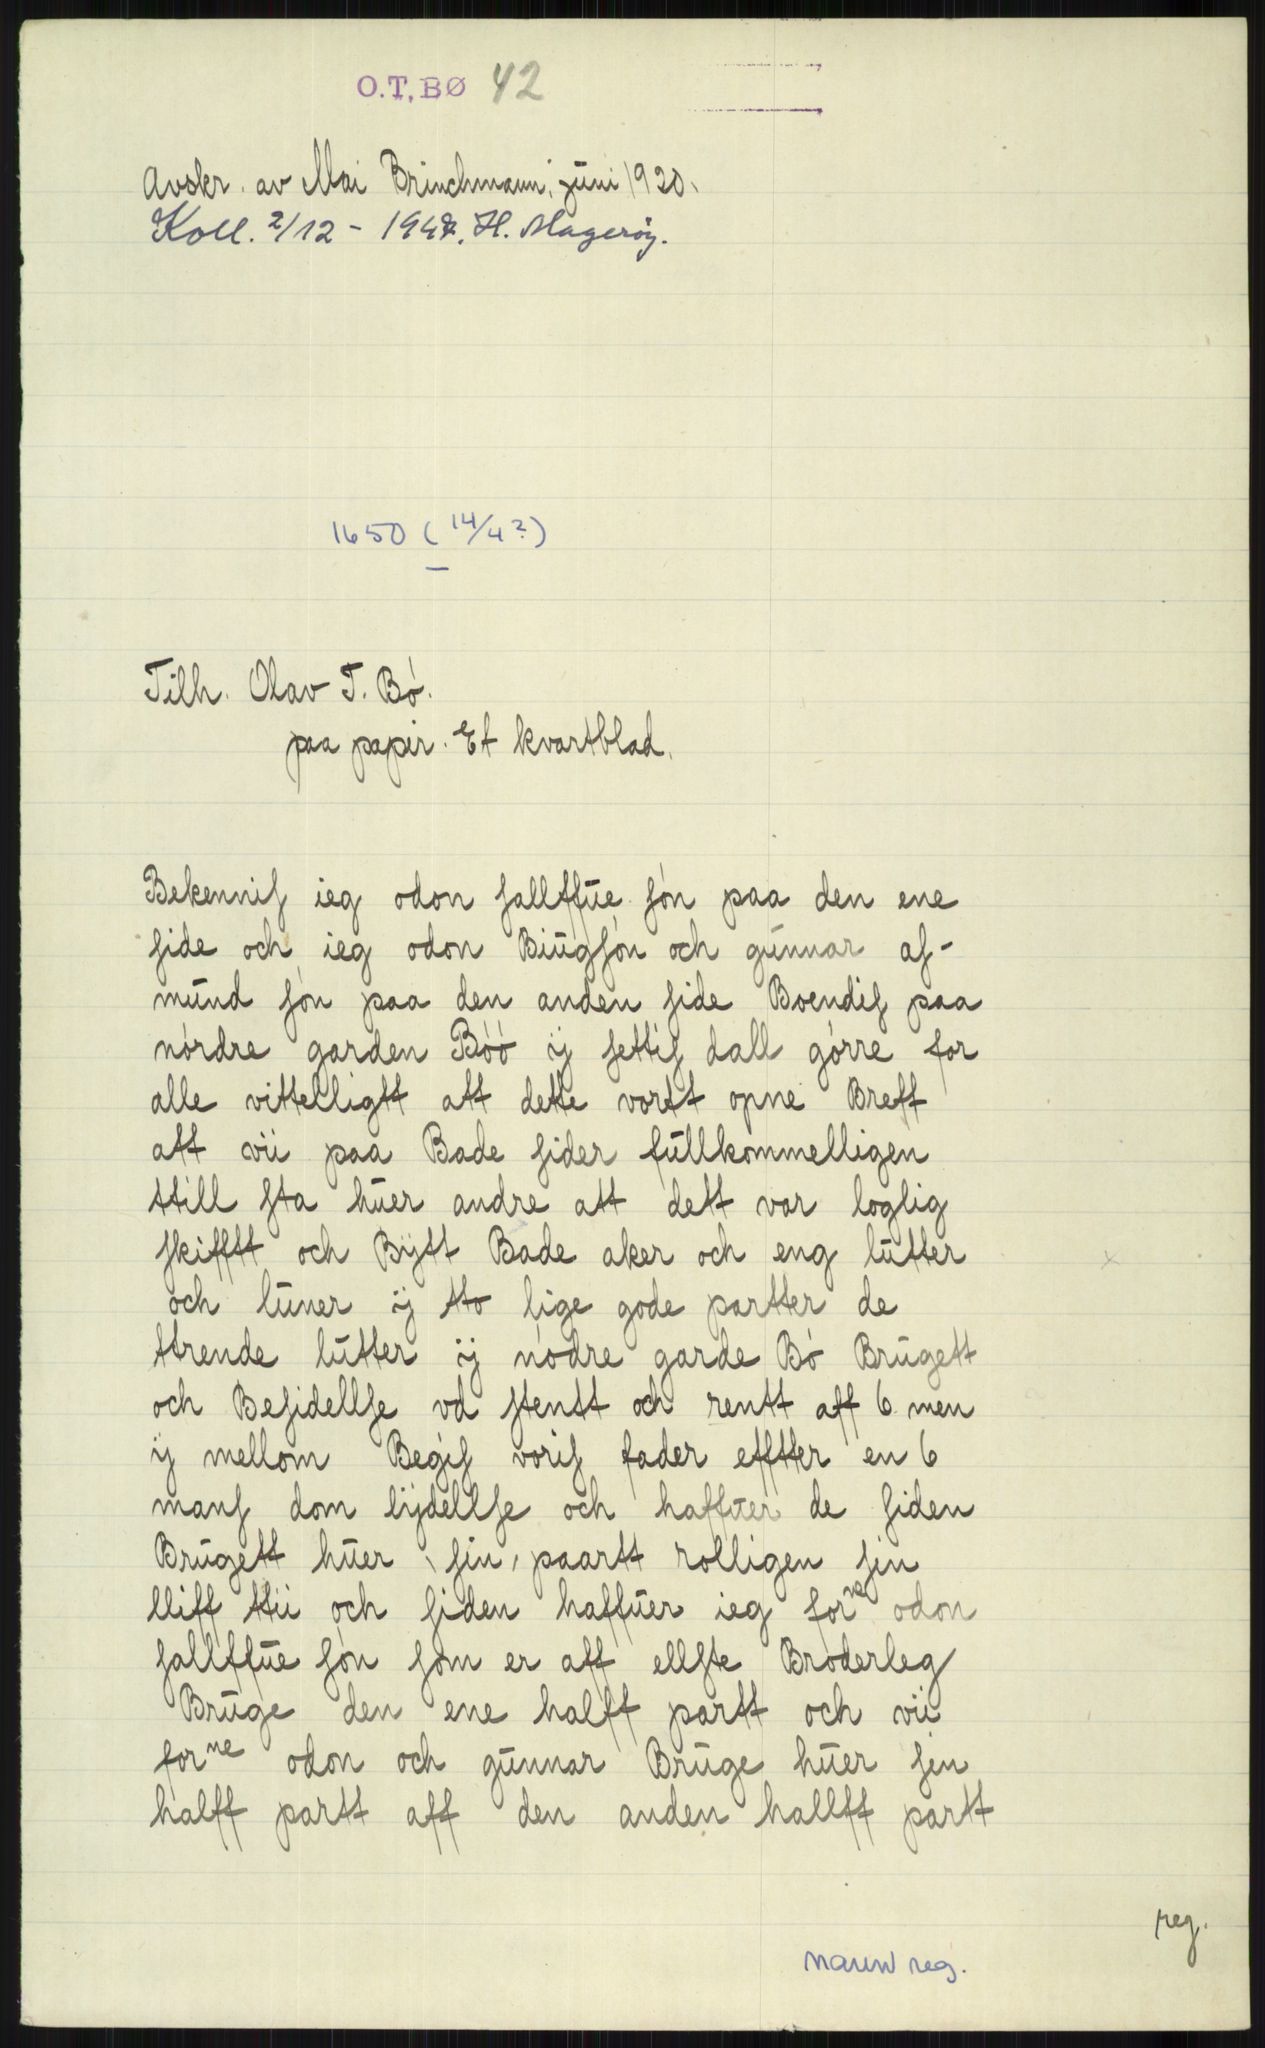 O.T. BØ 42
Avskr. av Mai Brinchmann, juni 1920.
Koll. 2/12 - 1947. H. Magerøy.
1650 (14/4?)
Tilh. Olav T. Bó.
paa papir. Et kvartblad.
Bekennis ieg odon sallffue són paa den ene
side och ieg odon Biugsón och gunnar as-
mund són paa den anden side Boendis paa
nórdre garden Bóó ij settis dall górre for
alle vittelligtt att dette vortt opne Breff
att vii paa Bade sider fullkommelligen
ttill sta huer andre att dett var loglig
skifftt och Bÿtt Bade aker och eng lutter
och luner ij tto lige gode partter de
ttrende lutter ij nódre garde Bó Brugett
och Besidellse vd stentt och rentt aff 6 men
ij mellom Begis voris fader efftter en 6
mans dom lÿdellse och haffuer de siden
Brugett huer sin paartt rolligen sin
lliff ttii och siden haffuer ieg forne odon
sallffue són som er aff ellste Broderleg
Bruge den ene halff partt och vii
forne odon och gunnar Bruge huer sin
halff partt aff den anden hallff partt
reg.
navn reg.